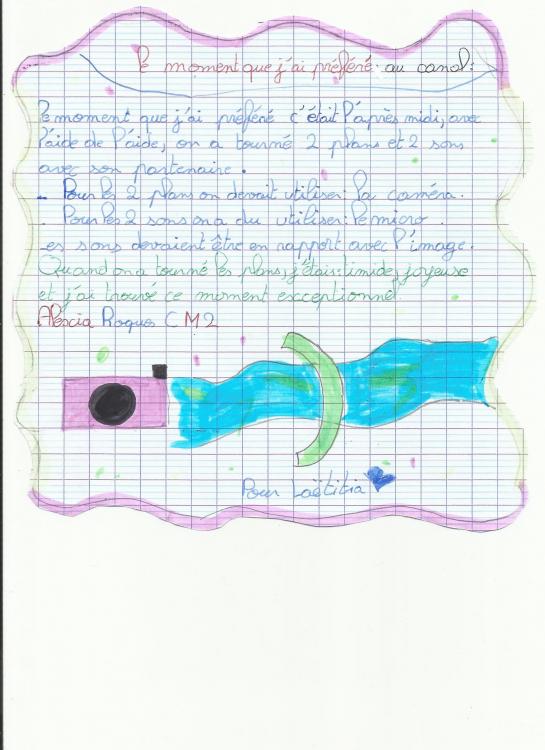 le moment que j'ai préféré: au canal:
le moment que j'ai préféré c'était l'après midi, avec
l'aide de l'aide, on a tourné 2 plans et 2 sons
avec son partenaire.
- Pour les 2 plans on devait utiliser: la caméra.
. Pour les 2 sons on a du utiliser: le micro.
Les sons devaient être en rapport avec l'image.
Quand on a tourné les plans, j'étais: timide, joyeuse
et j'ai trouvé ce moment exceptionnel.
Alexia Roques CM2
Pour Laëtitia